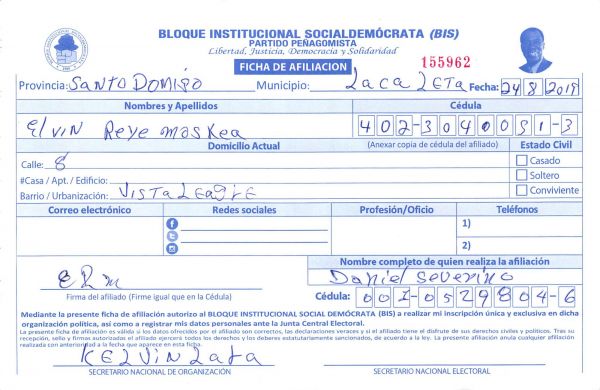 BLOQUE INSTITUCIONAL SOCIALDEMÓCRATA (BIS)
PARTIDO PEÑAGOMISTA
Libertad, Justicia, Democracia y Solidaridad
FICHA DE AFILIACION
155962
Provincia: SANTO DOMIGO Municipio: LACALETA Fecha: 24 8 2019
Nombres y Apellidos Cédula
Elvin Reye maskea 402-3040051-3
Domicilio Actual (Anexar copia de cédula del afiliado) Estado Civil
Calle: 8 Casado
#Casa / Apt. / Edificio: Soltero
Barrio / Urbanización: VISTALEAgRE Conviviente
Correo electrónico Redes sociales Profesión/Oficio Teléfonos
1)
2)
Nombre completo de quien realiza la afiliación
ERm Daniel Severino
Firma del afiliado (Firme igual que en la Cédula) Cédula: 001-0529804-6
Mediante la presente ficha de afiliación autorizo al BLOQUE INSTITUCIONAL SOCIAL DEMÓCRATA (BIS) a realizar mi inscripción única y exclusiva en dicha
organización política, así como a registrar mis datos personales ante la Junta Central Electoral.
La presente ficha de afiliación es válida si los datos ofrecidos por el afiliado son correctos, las declaraciones veraces y si el afiliado tiene el disfrute de sus derechos civiles y políticos. Tras su
recepción, sello y firmas autorizados el afiliado ejercerá todos los derechos y los deberes estatutariamente sancionados, de acuerdo a la ley. La presente afiliación anula cualquier afiliación
realizada con anterioridad a la fecha que aparece en esta ficha.
KELVIN Lara
SECRETARIO NACIONAL DE ORGANIZACIÓN SECRETARIO NACIONAL ELECTORAL